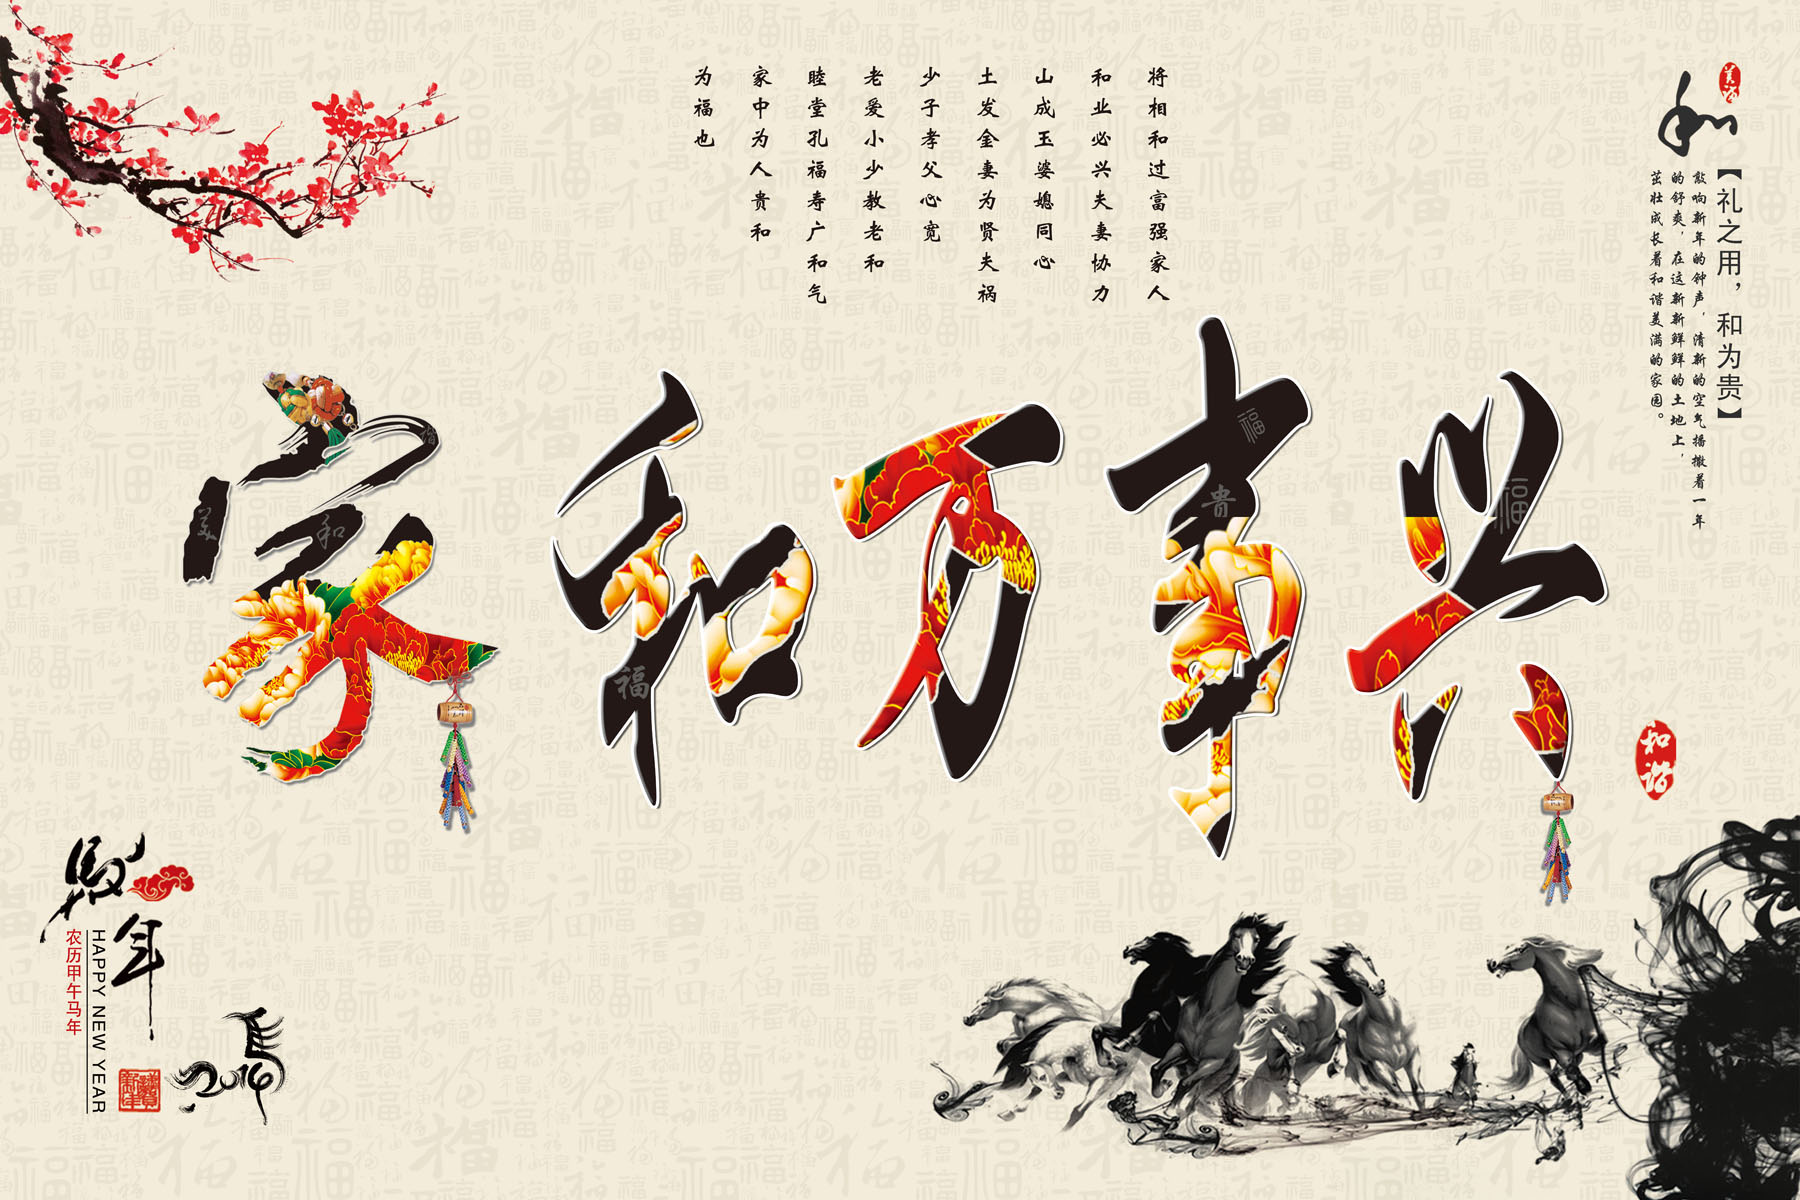 将相和过富强家人
和业必兴夫妻协力
山成玉婆媳同心
土发金妻为贤夫祸
少子孝父心宽
老爱小少教老和
睦堂孔福寿广和气
家中为人贵和
为福也
家和万事兴
美满
和
【礼之用，和为贵】
敲响新年的钟声，清新的空气播撒着一年
的舒爽，在这新新鲜鲜的土地上，
茁壮成长着和谐美满的家园。
和谐
馬年
HAPPY NEW YEAR
农历甲午马年
馬
2014